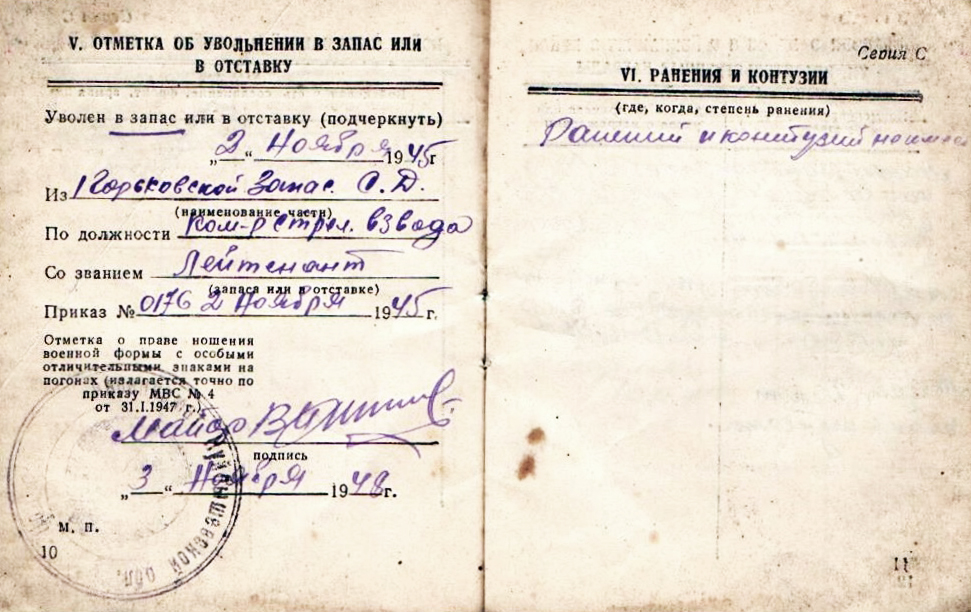 V. ОТМЕТКА ОБ УВОЛЬНЕНИИ В ЗАПАС ИЛИ
В ОТСТАВКУ
Уволен в запас или в отставку (подчеркнуть)
„2“ Ноября 1945г
Из 1 Горьковской Запас. С.Д.
(наименование части)
По должности Ком-р стрел. взвода
Со званием Лейтенант
(запаса или в отставке)
Приказ № 0176 2 Ноября 1945 г.
Отметка о праве ношения
военной формы с особыми
отличительными знаками на
погонах (излагается точно по
приказу МВС № 4
от 31.I.1947 г.)
Майор
подпись
„3“ Ноября 1948 г.
Куйбышевской обл.
м. п.
10
Серия С
VI. РАНЕНИЯ И КОНТУЗИИ
(где, когда, степень ранения)
Ранений и контузий не имеет
11